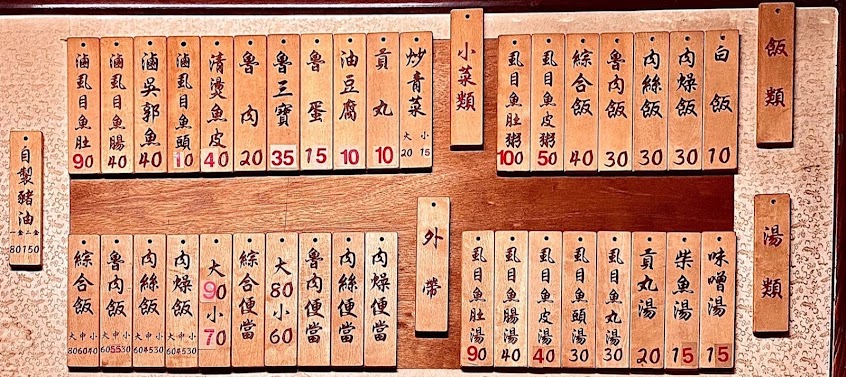 飯類
白飯 10
肉燥飯 30
肉絲飯 30
魯肉飯 30
綜合飯 40
虱目魚皮粥 50
虱目魚肚粥 100
小菜類
炒青菜 大20 小15
貢丸 10
油豆腐 10
魯蛋 15
魯三寶 35
魯肉 20
清燙魚皮 40
滷虱目魚頭 10
滷吳郭魚 40
滷虱目魚腸 40
滷虱目魚肚 90
湯類
味噌湯 15
柴魚湯 15
貢丸湯 20
虱目魚丸湯 30
虱目魚頭湯 30
虱目魚皮湯 40
虱目魚腸湯 40
虱目魚肚湯 90
外帶
肉燥便當
肉絲便當
魯肉便當
大80小60
綜合便當
大90小70
肉燥飯 大60 中45 小30
肉絲飯 大60 中45 小30
魯肉飯 大60 中55 小30
綜合飯 大80 中60 小40
自製豬油 一盒80 二盒150